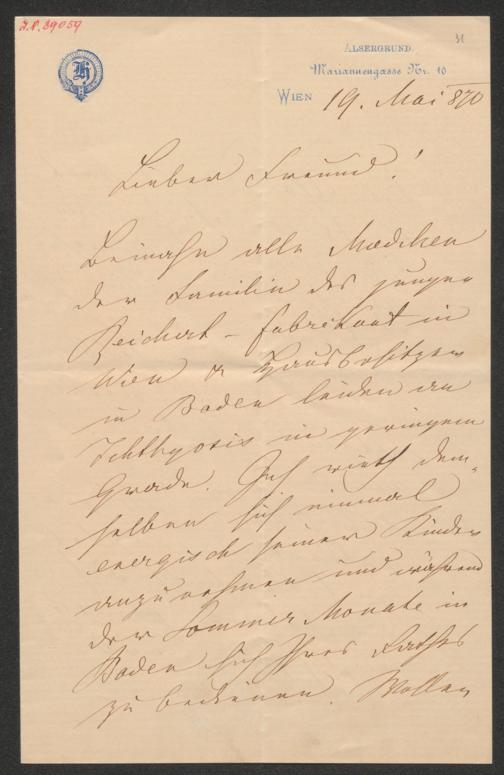 I.N. 39059
31
H
ALSERGRUND.
Mariannengasse Nr. 10
WIEN 19. Mai 870
Lieber Freund!
Beinahe alle Mädchen
der Familie des jungen
Reichert - Fabrikant in
Wien & Hausbesitzer
in Baden leiden an
Ichthyosis in geringem
Grade. Ich rieth dem-
selben sich einmal
energisch seiner Kinder
anzunehmen und während
der Sommer Monate in
Baden sich Ihres Rathes
zu bedienen. Wollen